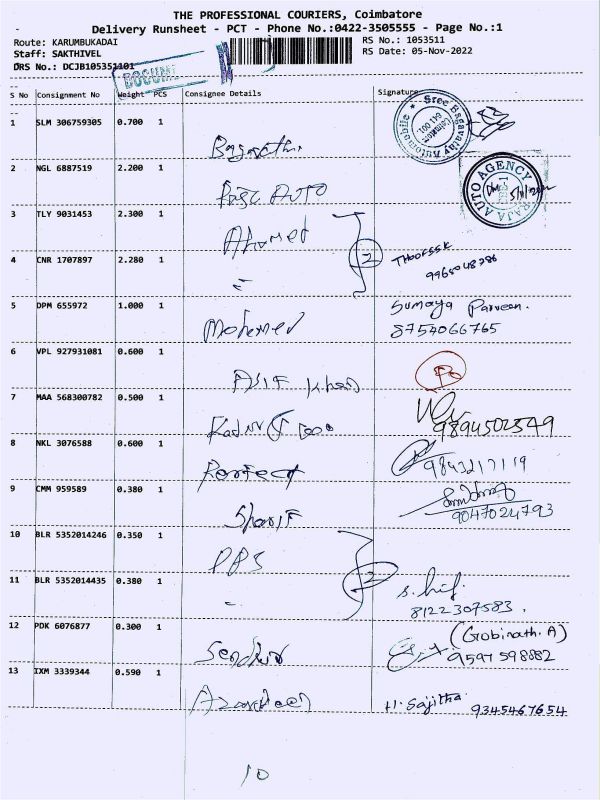 THE PROFESSIONAL COURIERS, Coimbatore
Delivery Runsheet - PCT - Phone No.:0422-3505555 - Page No.:1
Route: KARUMBUKADAI
RS No.: 1053511
Staff: SAKTHIVEL
RS Date: 05-Nov-2022
DRS No.: DCJB105351101
DOCUMENT
S No Consignment No Weight PCS Consignee Details Signature
1 SLM 306759305 0.700 1
2 NGL 6887519 2.200 1
AUTO
RAJA AUTO AGENCY
3 TLY 9031453 2.300 1
Ahamed
2
4 CNR 1707897 2.280 1
〃
9965048786
5 DPM 655972 1.000 1
Mohamed
Sumaya Parveen.
8754066765
6 VPL 927931081 0.600 1
ASIF Khan
7 MAA 568300782 0.500 1
9894502549
8 NKL 3076588 0.600 1
Perfect
9843217119
9 CMM 959589 0.380 1
Sharif
9047024793
10 BLR 5352014246 0.350 1
PPS
2
11 BLR 5352014435 0.380 1
〃
8122307583.
12 PDK 6076877 0.300 1
(Gobinath. A)
9597598882
13 IXM 3339344 0.590 1
H. Sajitha 9345467654
10